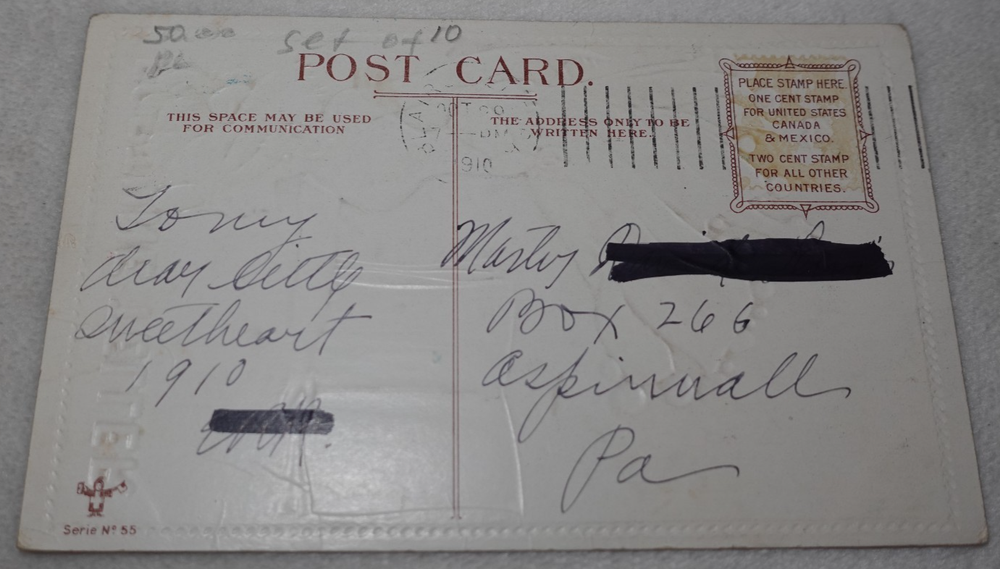 50.00 Set of 10
POST CARD.
THIS SPACE MAY BE USED
FOR COMMUNICATION
THE ADDRESS ONLY TO BE
WRITTEN HERE.
OCT
1910
PLACE STAMP HERE.
ONE CENT STAMP
FOR UNITED STATES
CANADA
& MEXICO.
TWO CENT STAMP
FOR ALL OTHER
COUNTRIES.
To my
dear little
sweetheart
1910
Master
Box 266
Aspinwall
Pa
Serie Nº 55